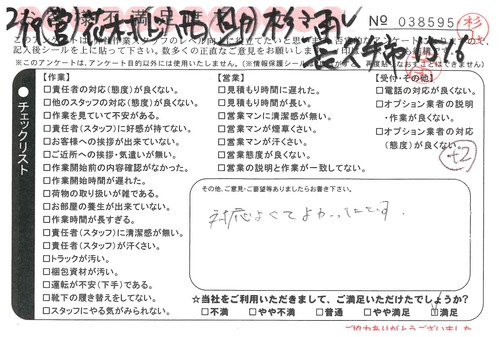 № 038595
杉
記入後シールを上に貼って下さい。数多くの正直なご意見をお願いします
※このアンケートは、アンケート目的以外には使用いたしません。
チェックリスト
【作業】
□責任者の対応(態度)が良くない。
□他のスタッフの対応(態度)が良くない。
□作業を見ていて不安がある。
□責任者(スタッフ)に好感が持てない。
□お客様への挨拶が出来ていない。
□ご近所への挨拶・気遣いが無い。
□作業開始前の内容確認がなかった。
□作業開始時間が遅れた。
□荷物の取り扱いが雑である。
□お部屋の養生が出来ていない。
□作業時間が長すぎる。
□責任者(スタッフ)に清潔感が無い。
□責任者(スタッフ)が汗くさい。
□トラックが汚い。
□梱包資材が汚い。
□運転が不安(下手)である。
□靴下の履き替えをしてない。
□スタッフにやる気がみられない。
【営業】
□見積もり時間に遅れた。
□見積もり時間が長い。
□営業マンに清潔感が無い。
□営業マンが煙草くさい。
□営業マンが汗くさい。
□営業態度が良くない。
□営業の説明と作業が一致してない。
【受付・その他】
□電話の対応が良くない。
□オプション業者の説明
・作業が良くない。
□オプション業者の対応
(態度)が良くない。
+2
その他、ご意見・ご要望等ありましたらお書き下さい。
対応よくてよかったです.
☆当社をご利用いただきまして、ご満足いただけたでしょうか?
□不満 □やや不満 □普通 □やや満足 □満足
ご協力ありがとうございました